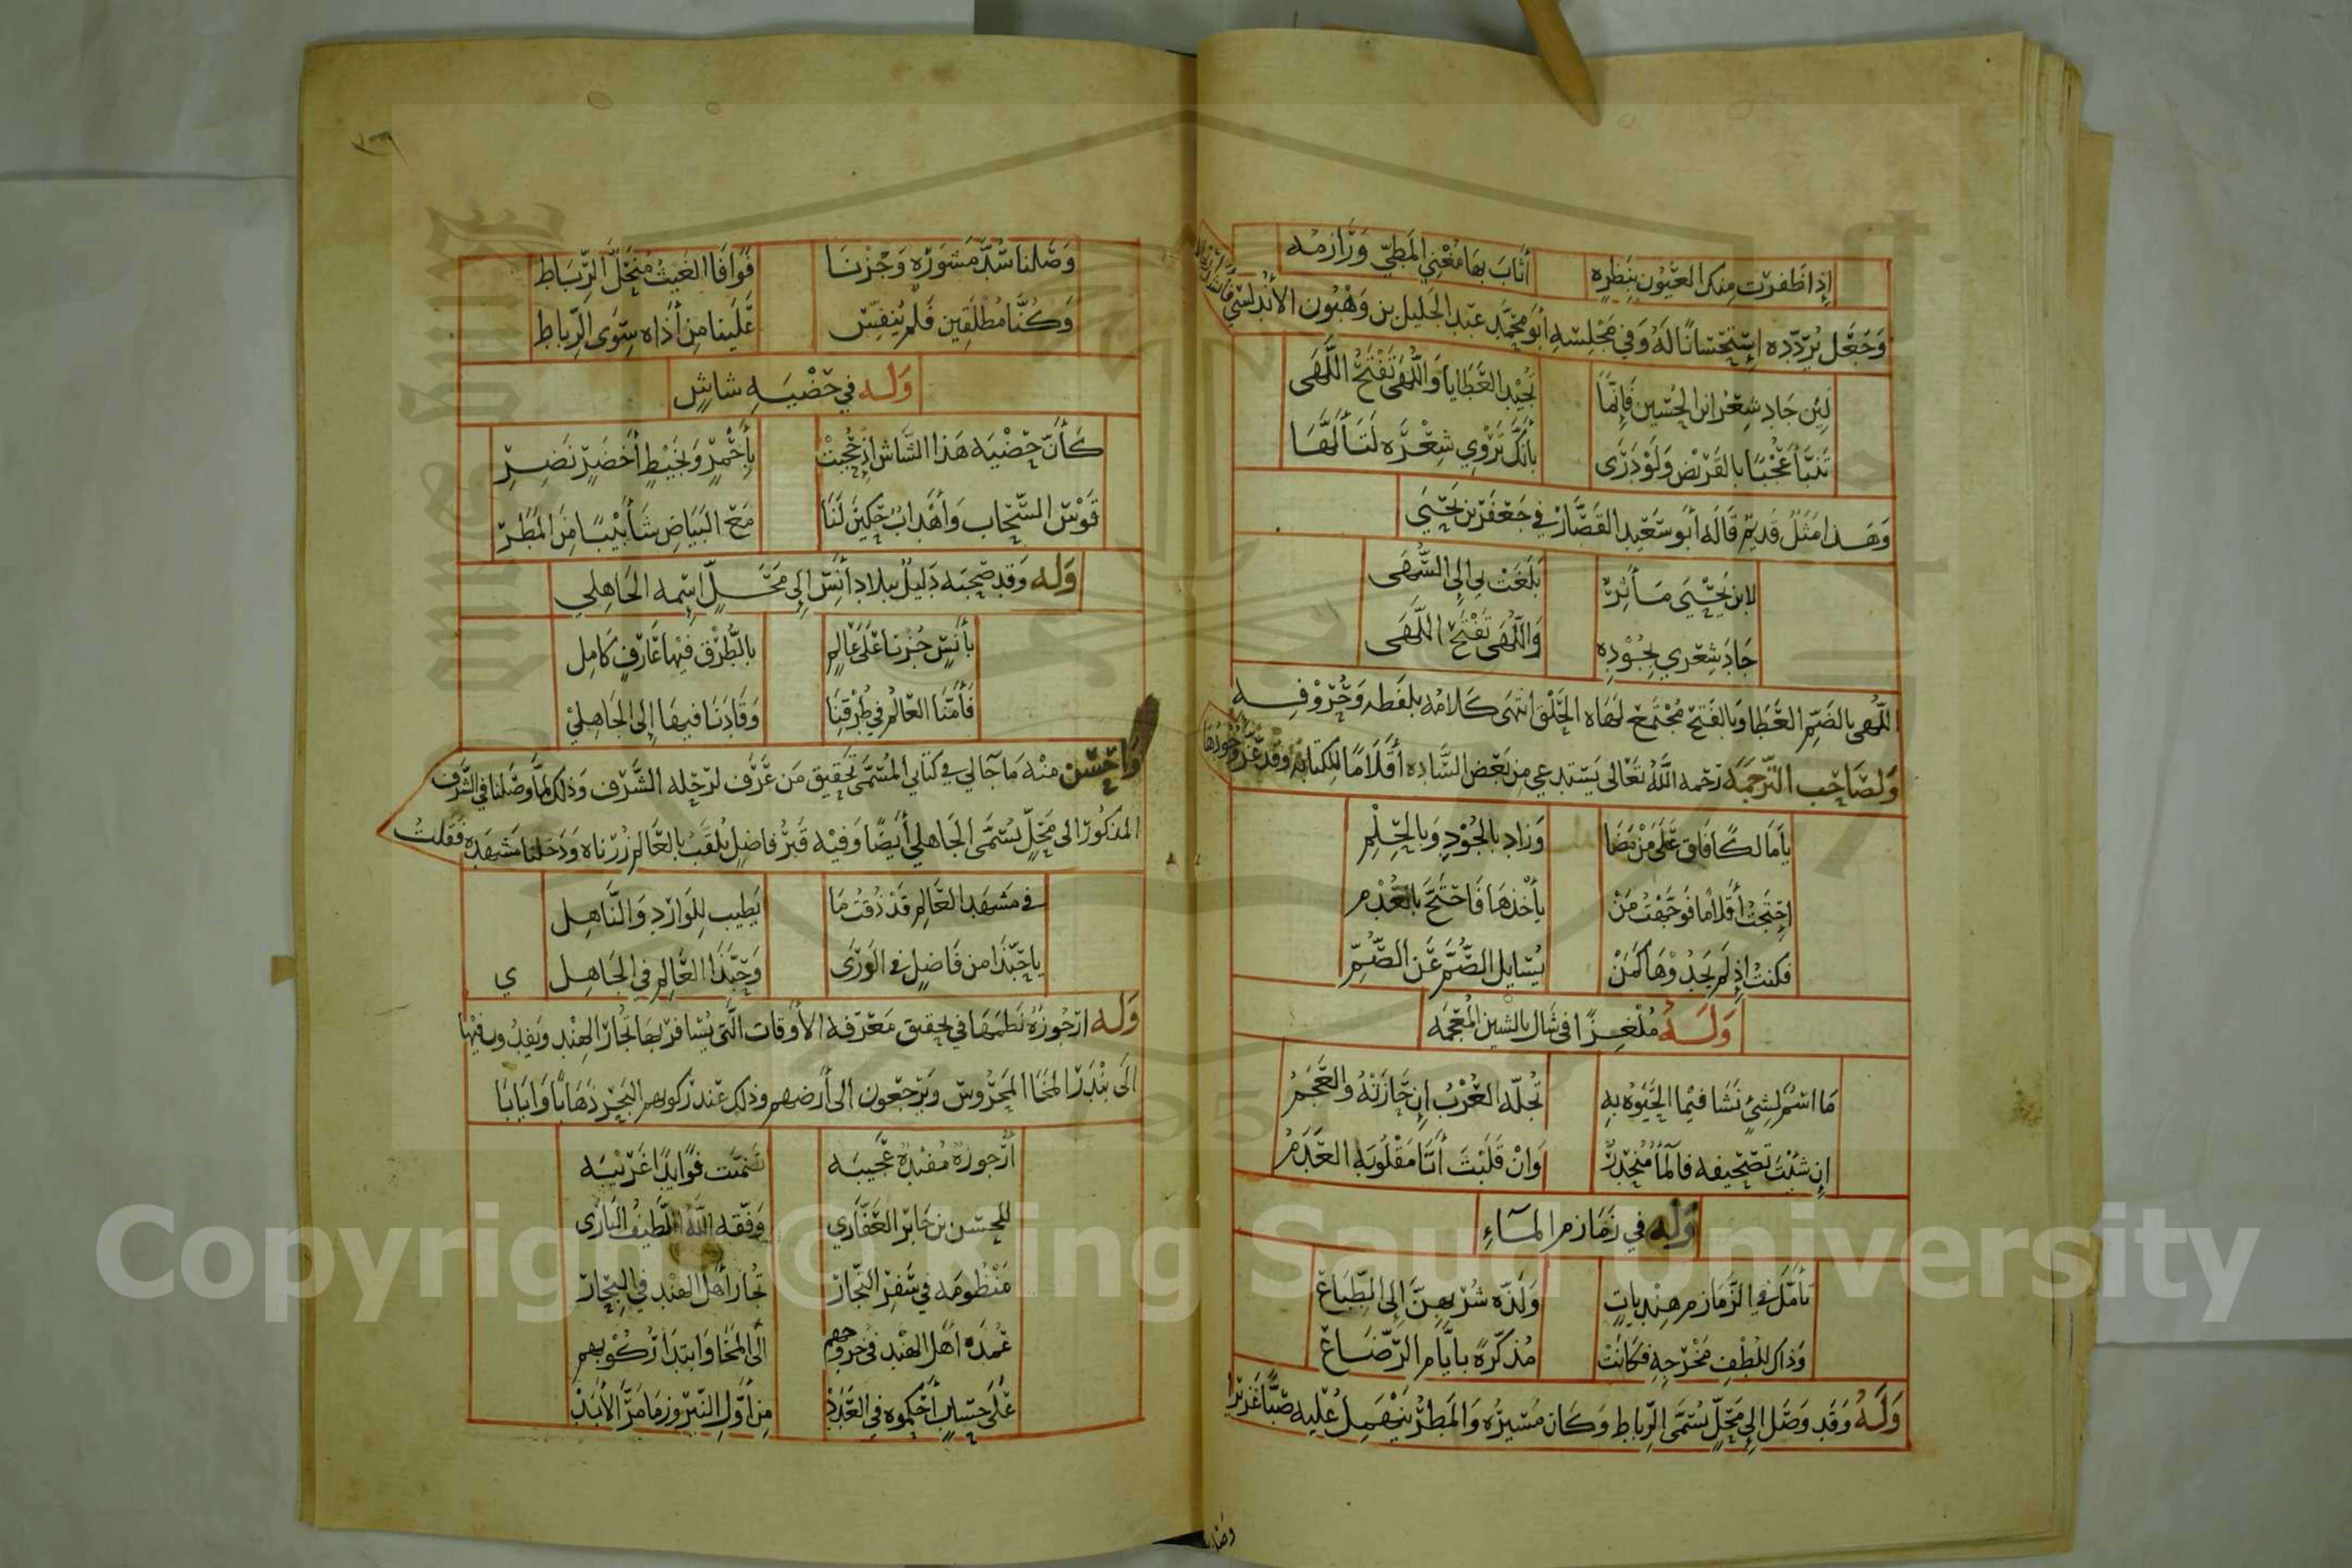 إذا ظفرت منك العيون بنظرة أثاب بها مغيي المطي ورازمه
وجعل يردده استحسانا له وفي مجلسه أبو محمد عبد الجليل بن وهبون الأندلسي فأنشد ارتجالا
لئن جاد شعر ابن الحسين فإنما تجيد العطايا واللهى تفتح اللهى
تنبأ عجبا بالقريض ولو درى بأنك تروي شعره لتألها
وهذا مثل قديم قاله أبو سعيد القصار في جعفر بن يحيى
لابن يحيى مآثر بلغت بي إلى السهى
جاد شعري بجوده واللهى تفتح اللهى
اللهى بالضم العطايا وبالفتح مجتمع لهاة الحلق انتهى كلامه بلفظه وحروفه
ولصاحب الترجمة رحمه الله تعالى يستدعي من بعض السادة أقلاما للكتابة وقد عز وجودها
يا مالكا فاق على من مضا وزاد بالجود وبالحلم
احتجت أقلاما فوجهت من يأخذها فاحتج بالعدم
فكنت إذ لم يجد وها كمن يسايل الصم عن الصم
وله ملغزا في شال بالشين المعجمة
ما اسم لشيء نشا فيما الحيوة به تجله العرب إن حازته والعجم
إن شئت تصحيفه فالما منحدر وان قلبت أتا مقلوبة العدم
وله في زمازم الماء
تأمل في الزمازم هنديات ولذة شربهن إلى الطباع
وذاك للطف مخرجه فكانت مذكرة بأيام الرضاع
وله وقد وصل إلى محل يسمى الرباط وكان مسيره والمطر ينهمل عليه صبا غزيرا
وصلنا
٣٦
وصلنا سد مشورة وجزنا فوافا الغيث منحل الرباط
وكنا مطلقين فلم ينفس علينا من أذاه سوى الرباط
وله في حضية شاش
كأن حضية هذا الشاش إذ حجبت بأحمر وبخيط أخضر نضر
قوس السحاب وأهداب حكين لنا مع البياض شأبيبا من المطر
وله وقد صحبه دليل ببلاد أنس إلى محل اسمه الجاهلي
بأنس جزنا على عالم بالطرق فيها عارف كامل
فأمنا العالم في طرقنا وقادنا فيها إلى الجاهلي
وأحسن منه ما جا لي في كتابي المسمى تحقيق من عرف لرحلة الشرف وذلك لما وصلنا في الشرف
المذكور الى محل يسمى الجاهلي أيضا وفيه قبر فاضل يلقب بالعالم زرناه ودخلنا مشهده فقلت
في مشهد العالم قد ذقت ما يطيب للوارد والناهل
يا حبذا من فاضل في الورى وحبذا العالم في الجاهل ي
وله ارجوزة نظمها في تحقيق معرفة الأوقات التي يسافر بها تجار الهند ويفدون فيها
الى بندر المخا المحروس ويرجعون الى أرضهم وذلك عند ركوبهم البحر ذهابا وايابا
أرجوزة مفيدة عجيبه تضمنت فوايدا غريبه
للحسن بن جابر العفاري وفقه الله اللطيف الباري
منظومة في سفر التجار تجار أهل الهند في البحار
عمدة اهل الهند في خروجهم الى المخا وابتدا ركوبهم
على حساب أحكموه في العدد من أول النيروز ما مر الأبد
Copyright © King Saud University